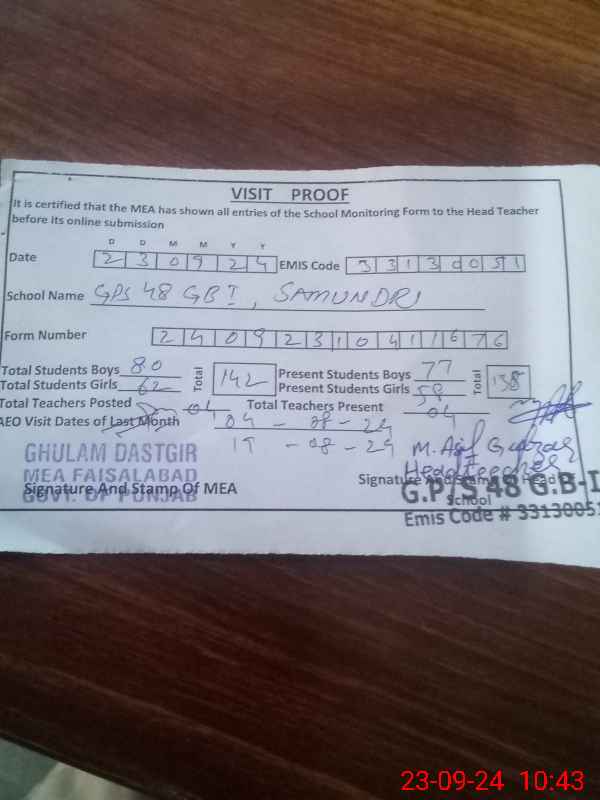 VISIT PROOF
It is certified that the MEA has shown all entries of the School Monitoring Form to the Head Teacher
before its online submission
D D M M Y Y
Date 2 3 0 9 2 4 EMIS Code 3 3 1 3 0 0 5 1
School Name GPS 48 GB I, SAMUNDRI
Form Number 2 4 0 9 2 3 1 0 4 1 1 6 7 6
Total Students Boys 80 Total 142 Present Students Boys 77 Total 138
Total Students Girls 62 Present Students Girls
Total Teachers Posted 04 Total Teachers Present 04
AEO Visit Dates of Last Month 04 - 08 - 24
- 08 - 24
M. Asif
Headteacher
GHULAM DASTGIR
MEA FAISALABAD
GOVT. OF PUNJAB
Signature And Stamp Of MEA
Signature And Stamp Head
School
G.P.S 48 G.B-I
Emis Code # 33130051
23-09-24 10:43